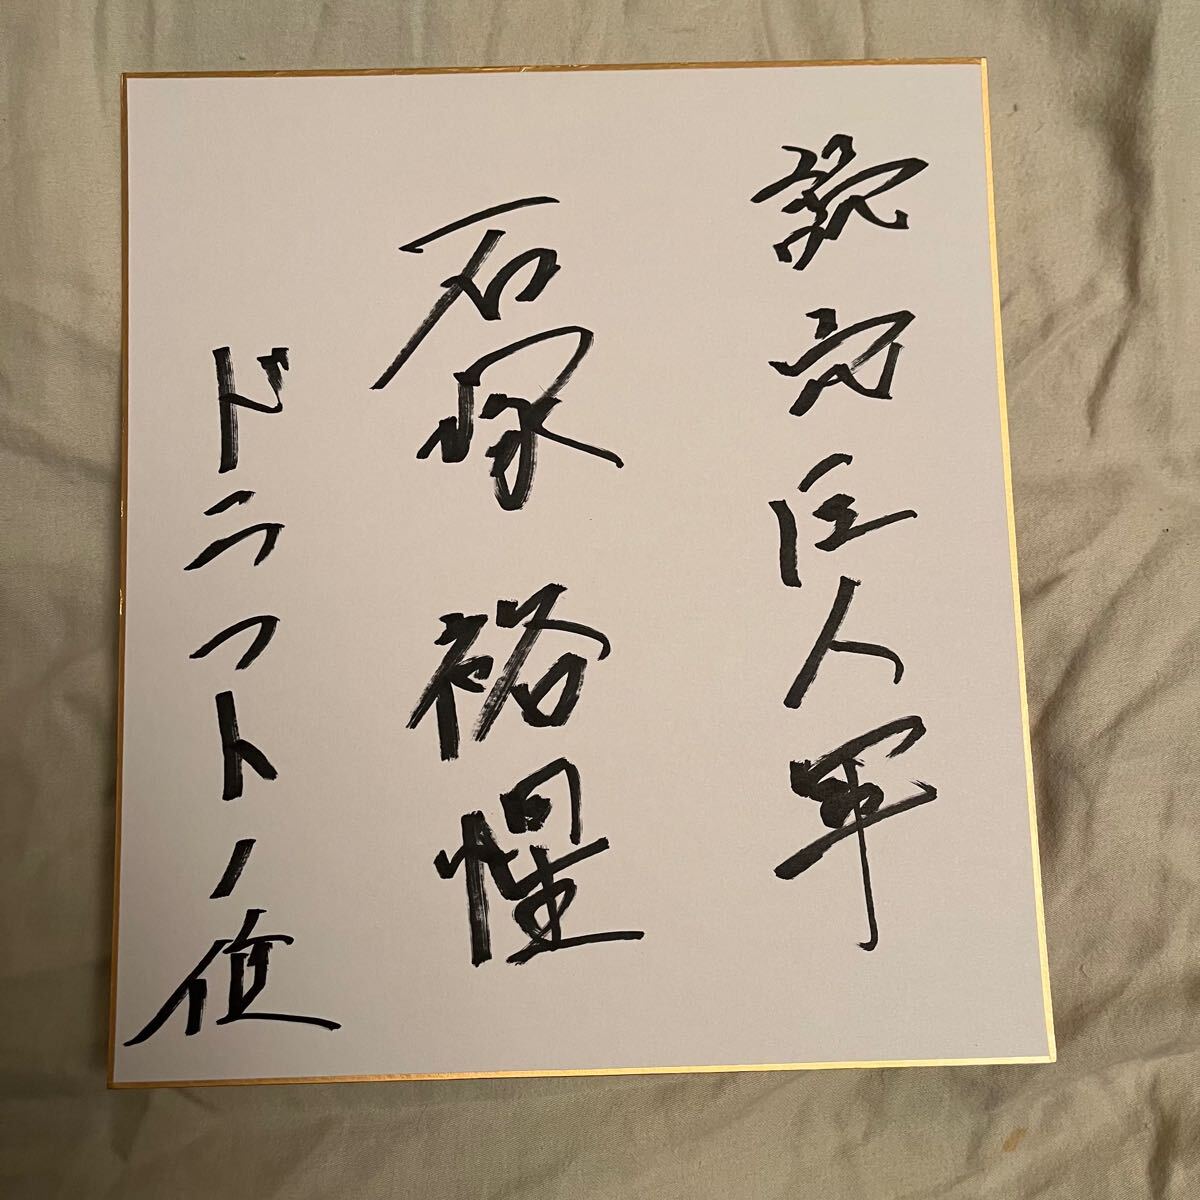 読売巨人軍
石塚裕惺
ドラフト1位